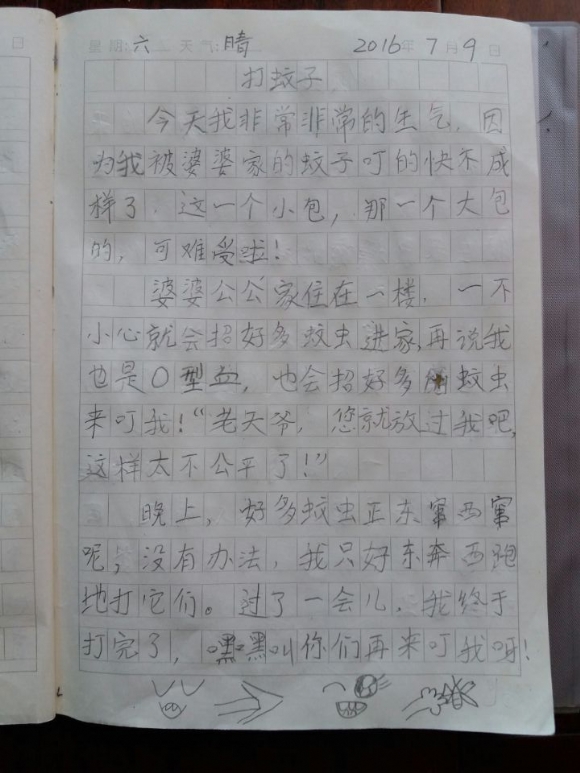 日
星期:六 天气:晴 2016年7月9日
打蚊子
今天我非常非常的生气，因
为我被婆婆家的蚊子叮的快不成
样了．这一个小包，那一个大包
的，可难受啦！
婆婆公公家住在一楼．一不
小心就会招好多蚊虫进家，再说我
也是O型血，也会招好多蚊虫
来叮我！“老天爷，您就放过我吧，
这样太不公平了！”
晚上，好多蚊虫正东窜西窜
呢，没有办法，我只好东奔西跑
地打它们。过了一会儿．我终于
打完了，嘿嘿叫你们再来叮我呀！